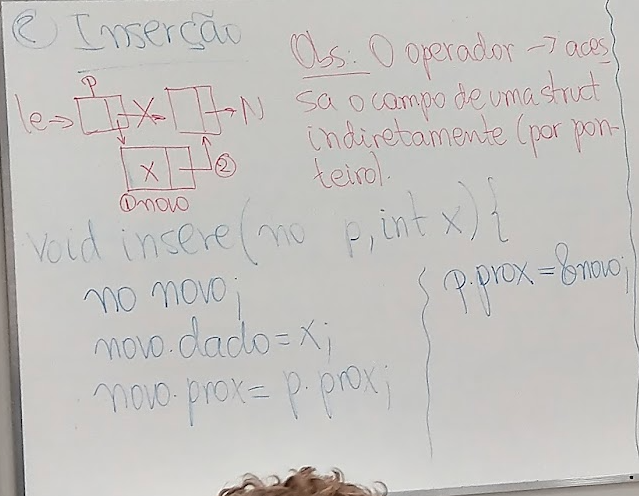 c Inserção
Obs: O operador → aces
sa o campo de uma struct
indiretamente (por pon-
teiro).
p
le → X → N
X
② 
① novo
void insere(no p, int x) {
no novo;
novo.dado = x;
novo.prox = p.prox;
p.prox = &novo;